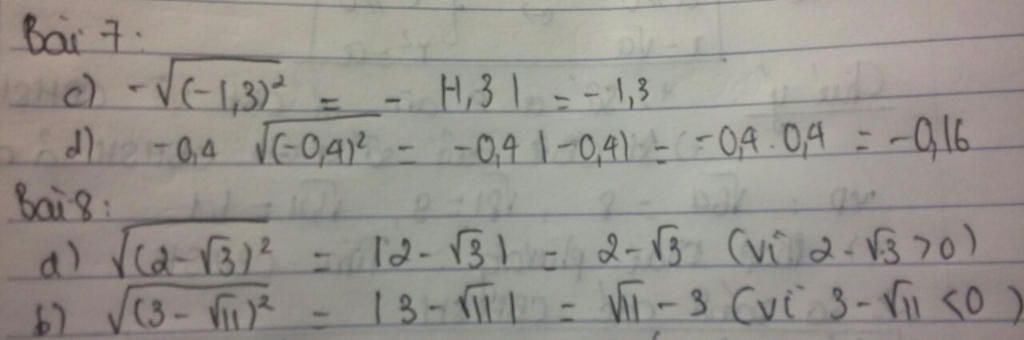 Bài 7:
c) -√(-1,3)² = - |-1,3| = -1,3
d) -0,4 √(-0,4)² = -0,4 |-0,4| = -0,4 . 0,4 = -0,16
Bài 8:
a) √(2-√3)² = |2-√3| = 2-√3 (vì 2-√3 >0)
b) √(3-√11)² = |3-√11| = √11-3 (vì 3-√11 <0)